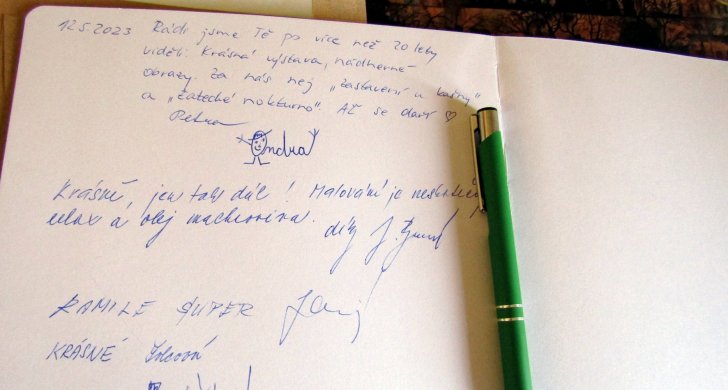 12.5.2023 Rádi jsme Tě po více než 20 lety
viděli. Krásná výstava, nádherné
obrazy. Za nás nej „Zastavení u kašny"
a „Žatecké nokturno". Ať se daří ♡
Petra
Ondra
Krásné, jen tak dál! Malování je
relax a olej
díky
KAMILE SUPER
KRÁSNÉ